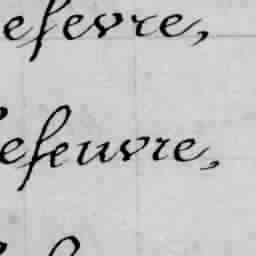 efevre,
efeuvre,